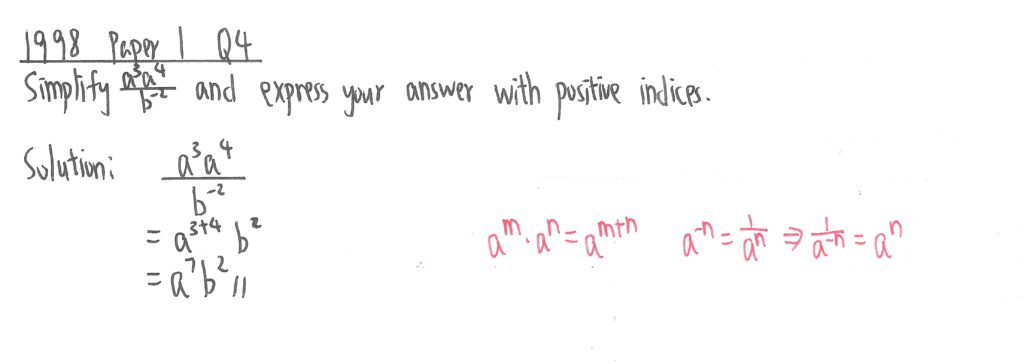 1998 Paper 1 Q4
Simplify a³a⁴/b⁻² and express your answer with positive indices.
Solution: a³a⁴/b⁻²
= a³⁺⁴ b²
= a⁷b² //
aᵐ·aⁿ = aᵐ⁺ⁿ a⁻ⁿ = 1/aⁿ ⇒ 1/a⁻ⁿ = aⁿ